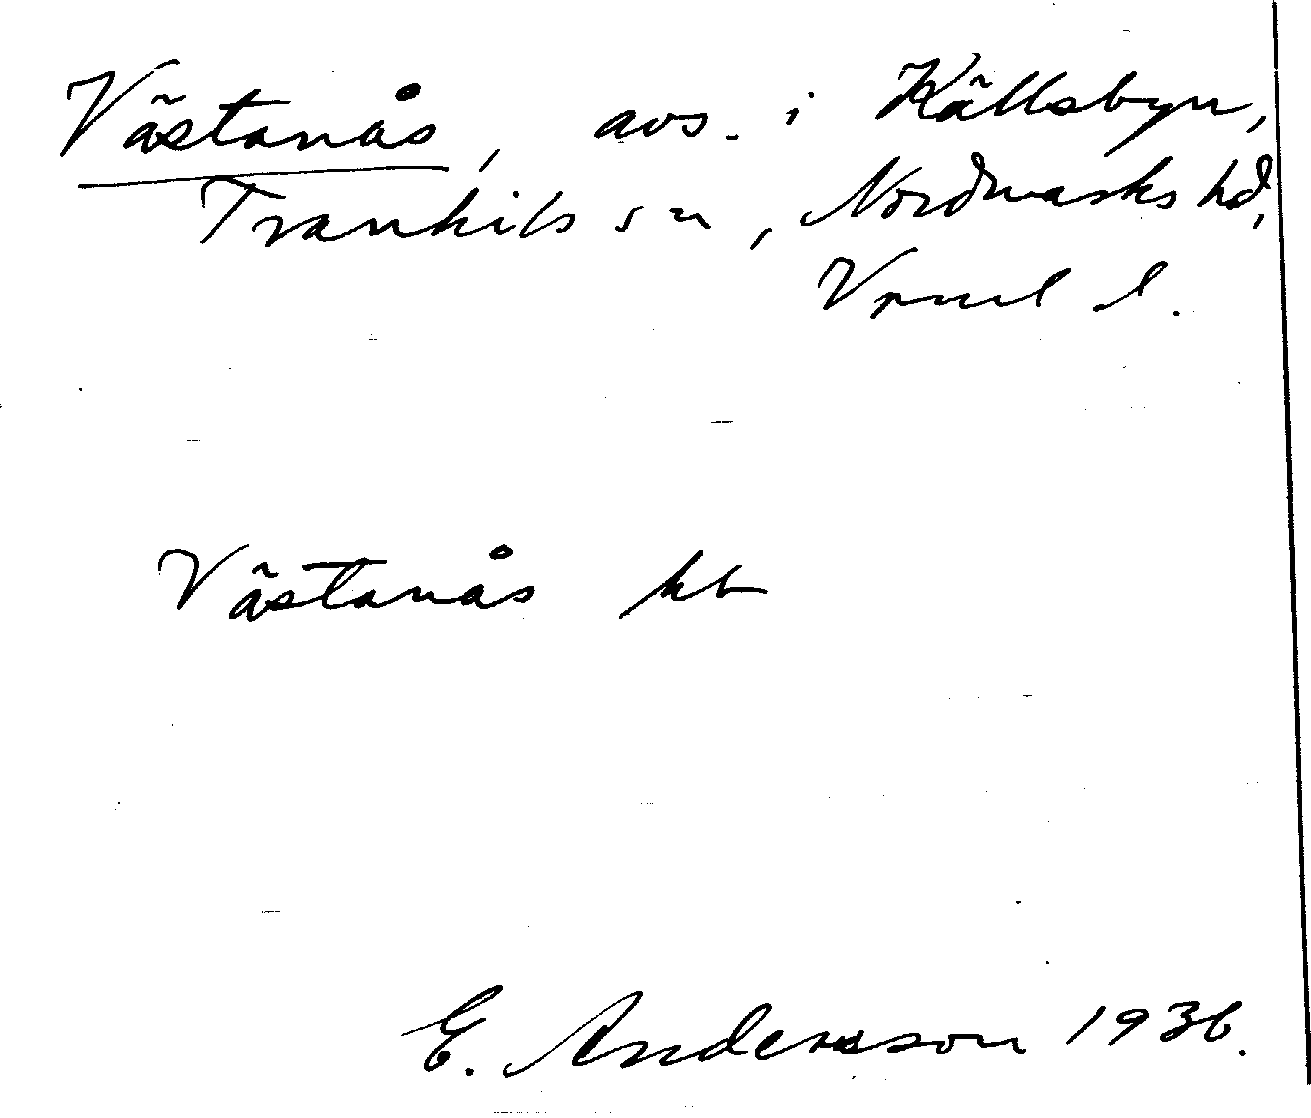 Västanås, avs. i Källsbyn,
Trankils sn, Nordmarks hd,
Vrml l.
Västanås kb
E. Andersson 1936.